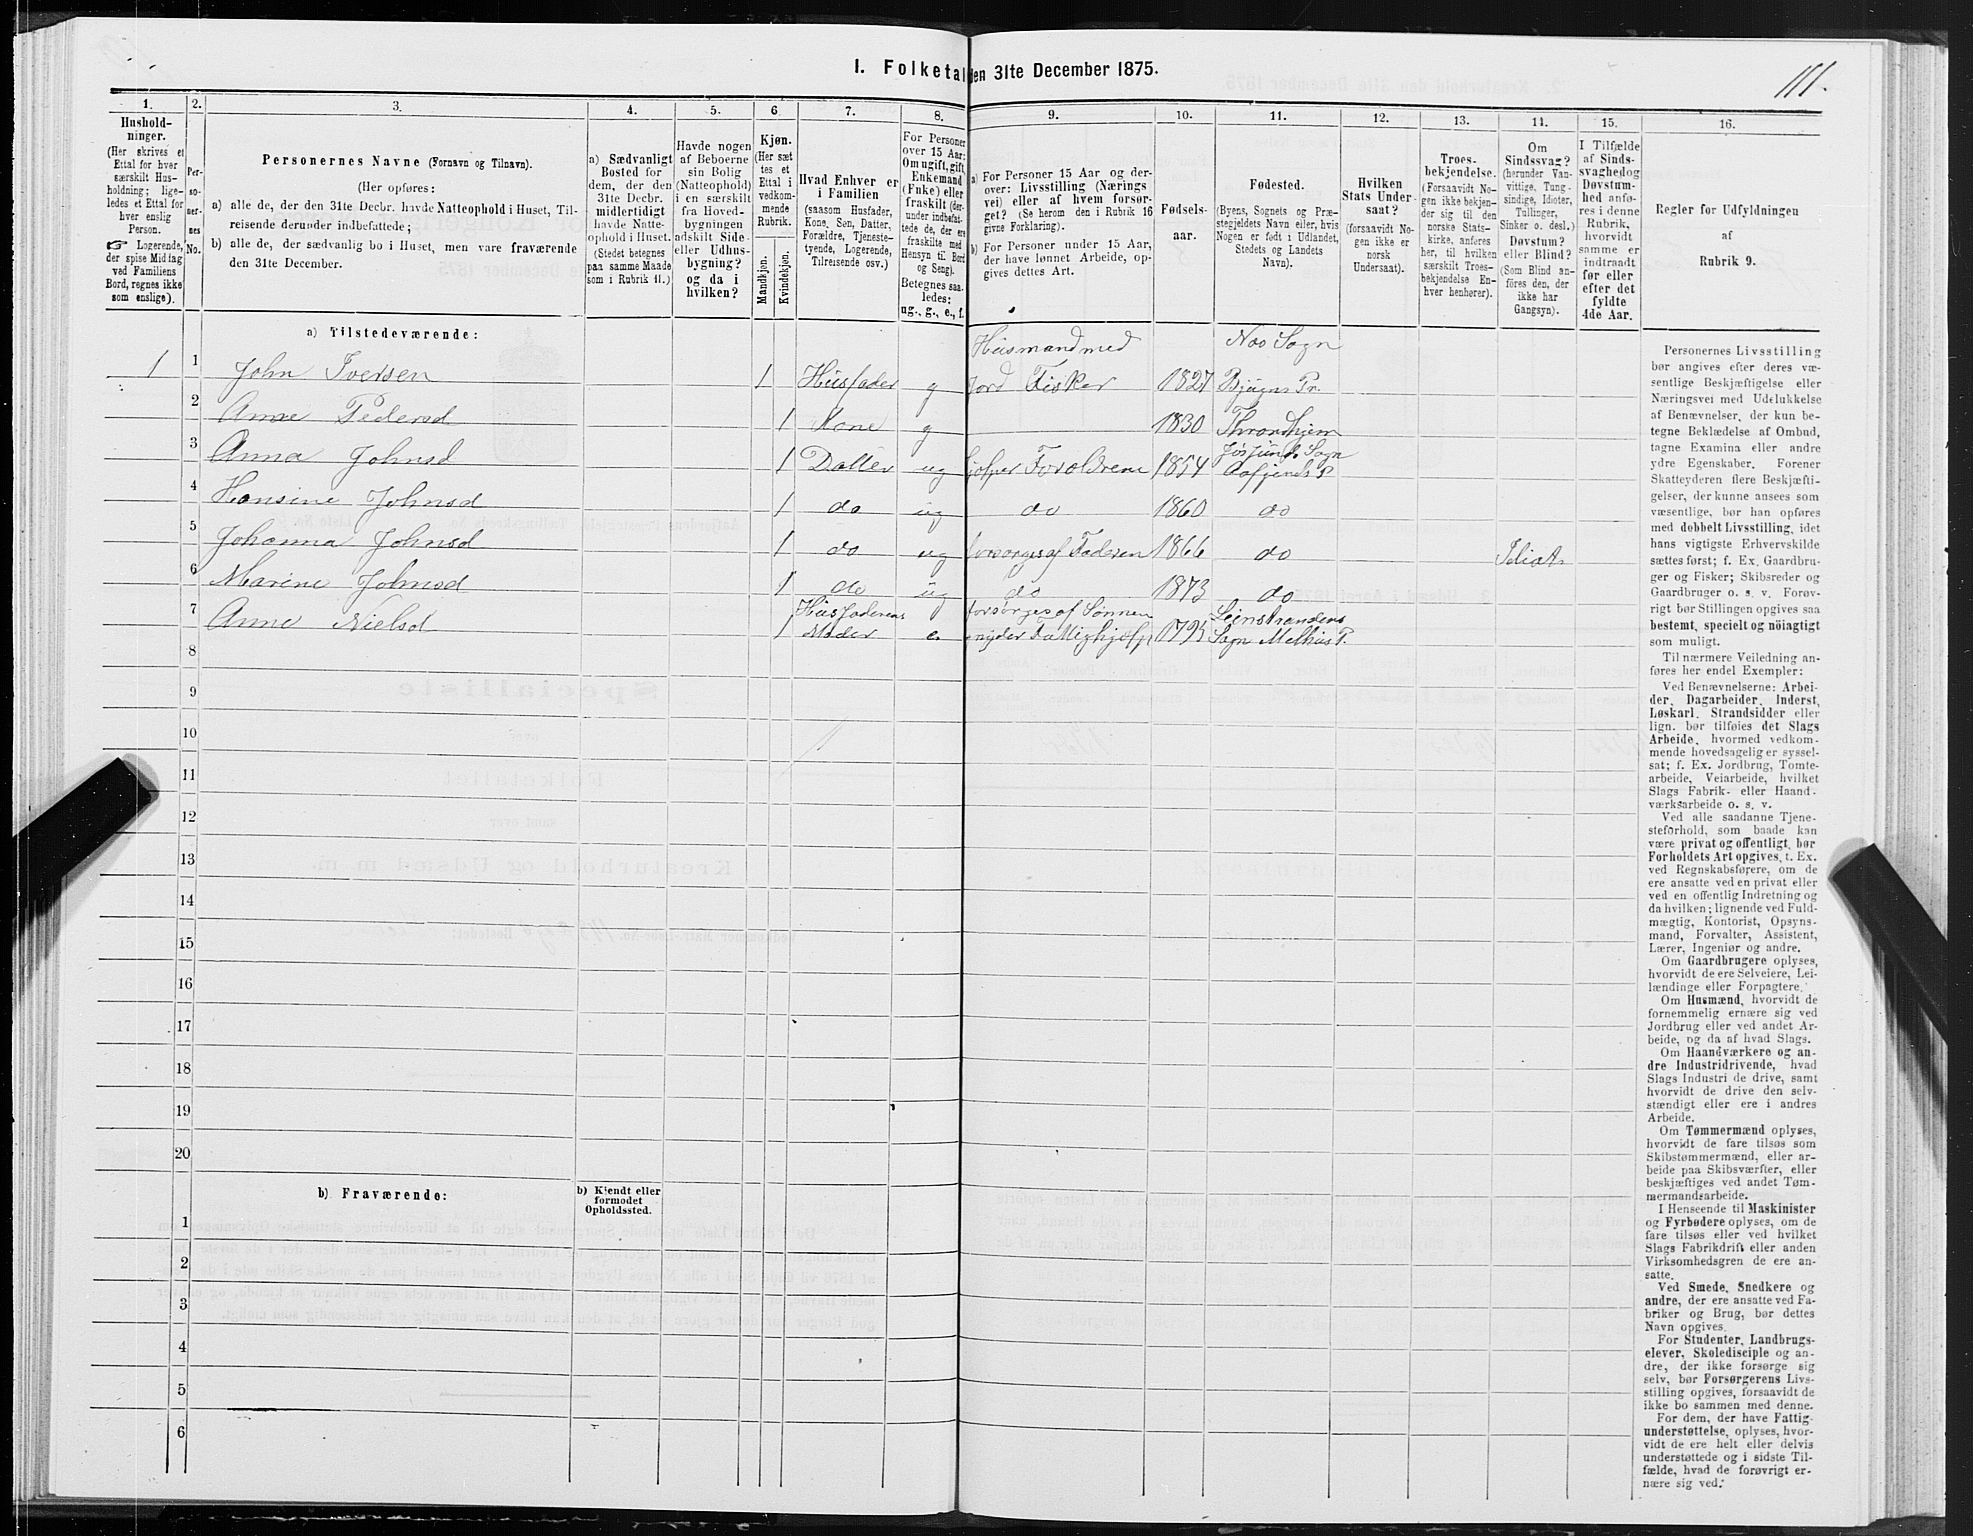 I. Folketal den 31te December 1875.
111.
1.
2.
3.
4.
5.
6
7.
8.
9.
10.
11.
12.
13.
14.
15.
16.
Hushold-
ninger.
(Her skrives et
Ettal for hver
særskilt Hus-
holdning; lige-
ledes et Ettal for
hver enslig
Person.
☞ Logerende,
der spise Middag
ved Familiens
Bord, regnes ikke
som enslige).
Per-
so-
ner-
nes
No.
Personernes Navne (Fornavn og Tilnavn).
(Her opføres:
a) alle de, der den 31te Decbr. havde Natteophold i Huset, Til-
reisende derunder indbefattede;
b) alle de, der sædvanlig bo i Huset, men vare fraværende
den 31te December.
a) Sædvanligt
Bosted for
dem, der den
31te Decbr.
midlertidigt
havde Natte-
ophold i Huset.
(Stedet betegnes
paa samme Maade
som i Rubrik 11.)
Havde nogen
af Beboerne
sin Bolig
(Natteophold)
i en særskilt
fra Hoved-
bygningen
adskilt Side-
eller Udhus-
bygning?
og da i
hvilken?
Kjøn.
(Her sæt-
tes et
Ettal i
vedkom-
mende
Rubrik.
Mandkjøn.
Kvindekjøn.
Hvad Enhver er
i Familien
(saasom Husfader,
Kone, Søn, Datter,
Forældre, Tjeneste-
tyende, Logerende,
Tilreisende osv.)
For Personer
over 15 Aar:
Om ugift, gift,
Enkemand
(Enke) eller
fraskilt (der-
under indbefat-
tede de, der ere
fraskilte med
Hensyn til Bord
og Seng).
Betegnes saa-
ledes:
ug., g., e., f.
a) For Personer 15 Aar og der-
over: Livsstilling (Nærings
vei) eller af hvem forsør-
get? (Se herom den i Rubrik 16
givne Forklaring).
b) For Personer under 15 Aar,
der have lønnet Arbeide, op-
gives dettes Art.
Fødsels-
aar.
Fødested.
(Byens, Sognets og Præ-
stegjeldets Navn eller, hvis
Nogen er født i Udlandet,
Stedets og Landets
Navn).
Hvilken
Stats Under-
saat?
(forsaavidt No-
gen ikke er
norsk
Undersaat).
Troes-
bekjendelse.
(Forsaavidt No-
gen ikke bekjen-
der sig til den
norske Stats-
kirke, anføres
her, til hvilken
særskilt Troes-
bekjendelse En-
hver henhører).
Om
Sindssvag?
(herunder Van-
vittige, Tung-
sindige, Idioter,
Tullinger,
Sinker o. desl.)
Døvstum?
eller Blind?
(Som Blind an-
føres den, der
ikke har
Gangsyn).
I Tilfælde
af Sinds-
svaghed og
Døvstum-
hed anfø-
res i denne
Rubrik,
hvorvidt
samme er
indtraadt
før eller
efter det
fyldte
4de Aar.
Regler for Udfyldningen
af
Rubrik 9.
a) Tilstedeværende:
1 1 John Iversen 1 Husfader g Husmand med Jord Fisker 1827 Næs Sogn Bjugns Pr.
2 Anne Pedersd 1 Kone g 1830 Throndhjem
3 Anna Johnsd 1 Datter ug hjelper Forældrene 1854 Jøssunds Sogn Aafjords P
4 Hansine Johnsd 1 do ug do 1860 do
5 Johanna Johnsd 1 do ug forsørges af Faderen 1866 do Idiot
6 Marine Johnsd 1 do ug do 1873 do
7 Anne Nielsd 1 Husfaderens Moder e forsørges af Sønnen nyder Fattighjelp 1795 Leinstrandens Sogn Melhus P.
8
9
10
11
12
13
14
15
16
17
18
19
20
b) Fraværende:
b) Kjendt eller
formodet
Opholdssted.
1
2
3
4
5
6
Personernes Livsstilling
bør angives efter deres væ-
sentlige Beskjæftigelse eller
Næringsvei med Udelukkelse
af Benævnelser, der kun be-
tegne Beklædelse af Ombud,
tagne Examina eller andre
ydre Egenskaber. Forener
Skatteyderen flere Beskjæfti-
gelser, der kunne ansees som
væsentlige, bør han opføres
med dobbelt Livsstilling, idet
hans vigtigste Erhvervskilde
sættes først; f. Ex. Gaardbru-
ger og Fisker; Skibsreder og
Gaardbruger o. s. v. Forøv-
rigt bør Stillingen opgives saa
bestemt, specielt og nöiagtigt
som muligt.
Til nærmere Veiledning an-
føres her endel Exempler:
Ved Benævnelserne: Arbei-
der, Dagarbeider, Inderst,
Løskarl, Strandsidder eller
lign. bør tilføies det Slags
Arbeide, hvormed vedkom-
mende hovedsagelig er syssel-
sat; f. Ex. Jordbrug, Tomte-
arbeide, Veiarbeide, hvilket
Slags Fabrik- eller Haand-
værksarbeide o. s. v.
Ved alle saadanne Tjene-
steforhold, som baade kan
være privat og offentligt, bør
Forholdets Art opgives, t. Ex.
ved Regnskabsførere, om de
ere ansatte ved en privat eller
ved en offentlig Indretning og
da hvilken; lignende ved Fuld-
mægtig, Kontorist, Opsyns-
mand, Forvalter, Assistent,
Lærer, Ingeniør og andre.
Om Gaardbrugere oplyses,
hvorvidt de ere Selveiere, Lei-
lændinge eller Forpagtere.
Om Husmænd, hvorvidt de
fornemmelig ernære sig ved
Jordbrug eller ved andet Ar-
beide, og da af hvad Slags.
Om Haandværkere og an-
dre Industridrivende, hvad
Slags Industri de drive, samt
hvorvidt de drive den selv-
stændigt eller ere i andres
Arbeide.
Om Tømmermænd oplyses,
hvorvidt de fare tilsøs som
Skibstømmermænd, eller ar-
beide paa Skibsværfter, eller
beskjæftiges ved andet Tøm-
mermandsarbeide.
I Henseende til Maskinister
og Fyrbødere oplyses, om de
fare tilsøs eller ved hvilket
Slags Fabrikdrift eller anden
Virksomhedsgren de ere an-
satte.
Ved Smede, Snedkere og
andre, der ere ansatte ved Fa-
briker og Brug, bør dettes
Navn opgives.
For Studenter, Landbrugs-
elever, Skoledisciple og an-
dre, der ikke forsørge sig
selv, bør Forsørgerens Livs-
stilling opgives, forsaavidt de
ikke bo sammen med denne.
For dem, der have Fattig-
understøttelse, oplyses, hvor-
vidt de ere helt eller delvis
understøttede og i sidste Til-
fælde, hvad de forøvrigt er-
nære sig ved.